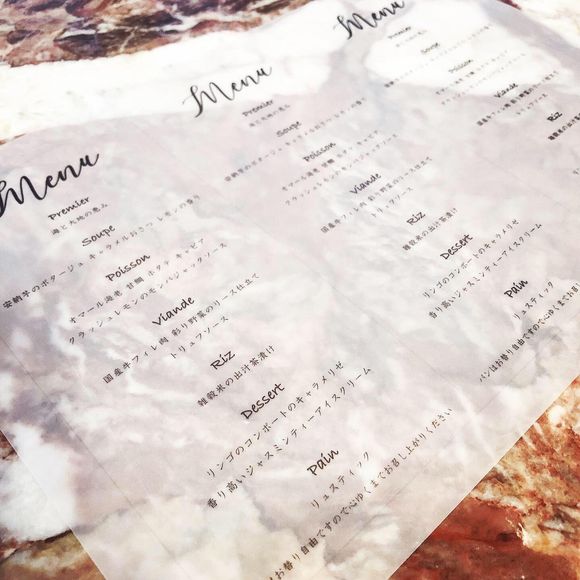 Menu
Premier
海と大地の恵み
Soupe
安納芋のポタージュ キャラメルおさつ レモンの香り
Poisson
オマール海老 甘鯛 ホタテ キャビア
クラッシュレモンのモンパジャックソース
Viande
国産牛フィレ肉 彩り野菜のリース仕立て
トリュフソース
Riz
雑穀米の出汁茶漬け
Dessert
リンゴのコンポートのキャラメリゼ
香り高いジャスミンティーアイスクリーム
Pain
リュスティック
お替り自由ですので心ゆくまでお召し上がりください
Menu
Premier
海と大地の恵み
Soupe
安納芋のポタージュ キャラメルおさつ レモンの香り
Poisson
オマール海老 甘鯛 ホタテ キャビア
クラッシュレモンのモンパジャックソース
Viande
国産牛フィレ肉 彩り野菜のリース仕立て
トリュフソース
Riz
雑穀米の出汁茶漬け
Dessert
リンゴのコンポートのキャラメリゼ
香り高いジャスミンティーアイスクリーム
Pain
リュスティック
パンはお替り自由ですので心ゆくまでお召
Menu
Premier
Soupe
Poisson
Viande
国産牛フィレ肉 彩り
トリュフソース
Riz
雑穀米の出汁